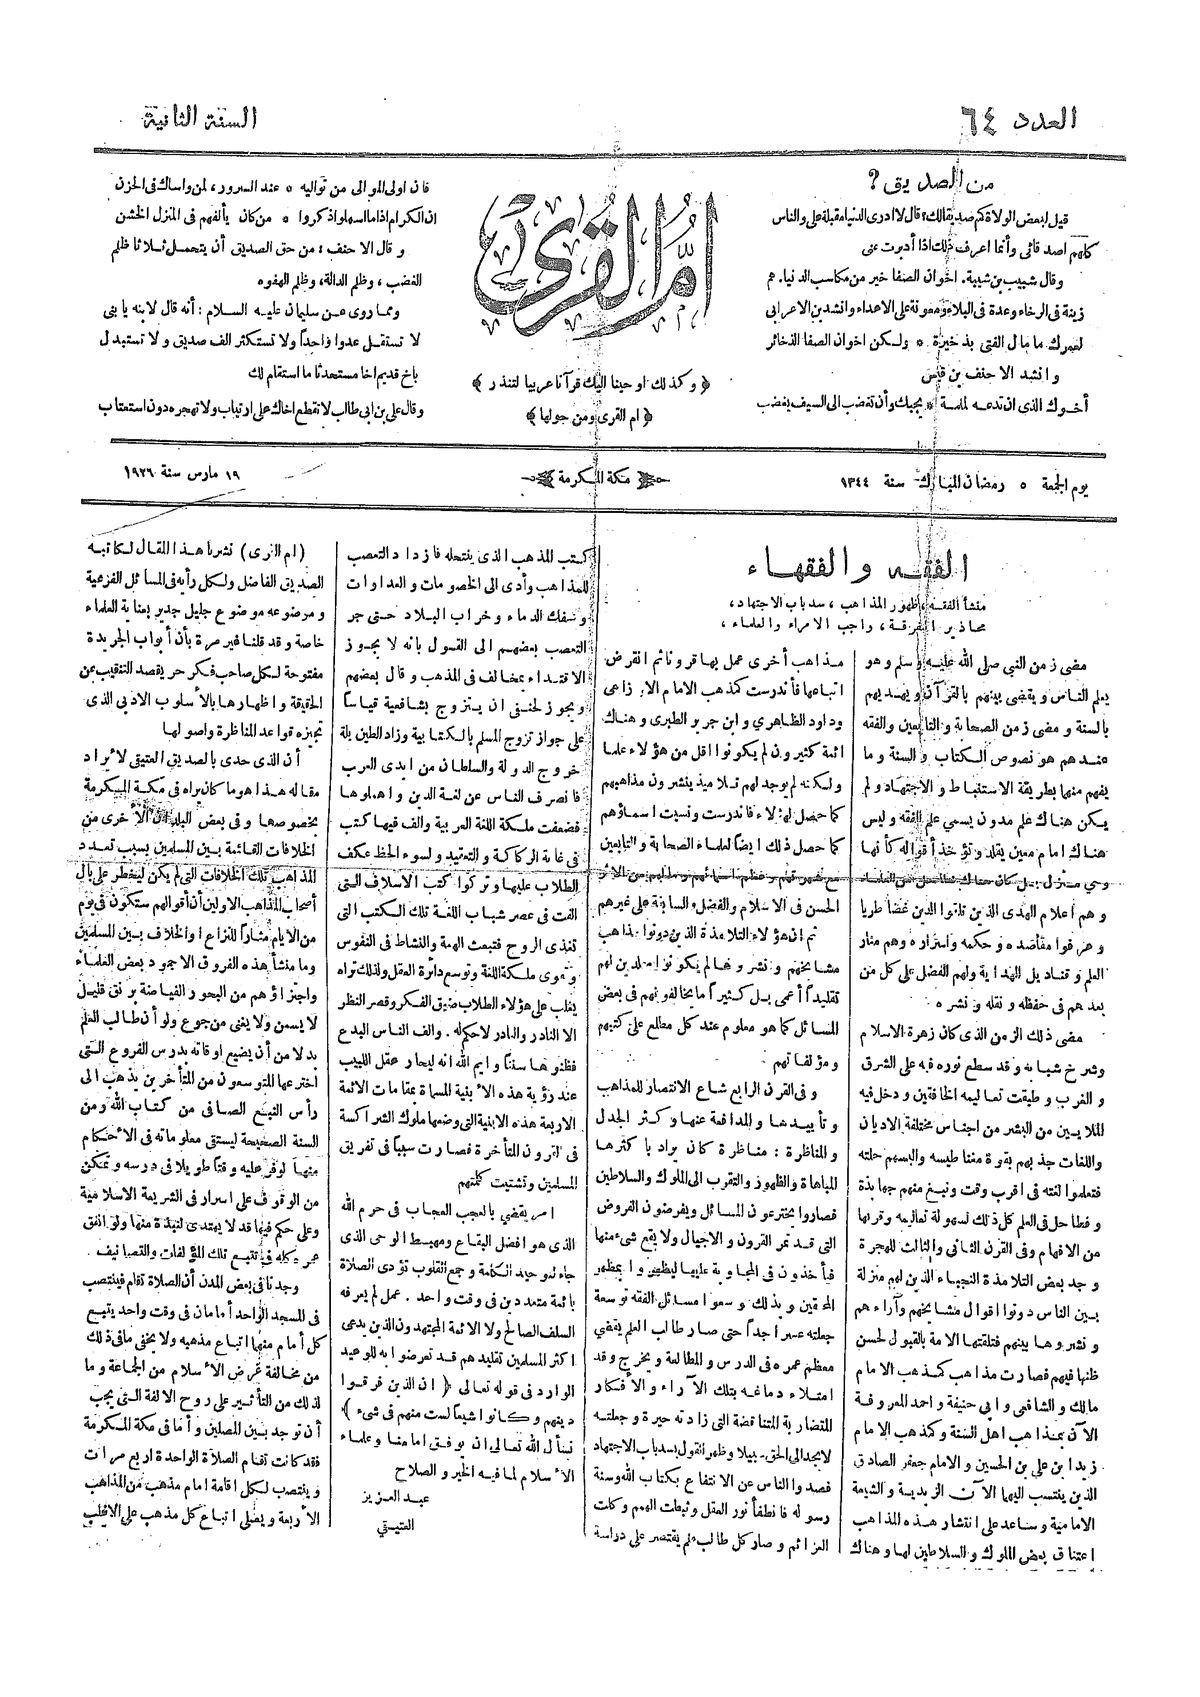 العدد ٦٤
السنة الثانية
من الصديق؟
قيل لبعض الولاة كم صديقا لك؟ قال لا ادرى الدنيا مقبلة على والناس
كلهم اصدقائى وأنما اعرف ذلك اذا أدبرت عنى
وقال شبيب بن شيبة. اخوان الصفا خير من مكاسب الدنيا. هم
زينة فى الرخاء وعدة فى البلاء ومعونة على الاعداء وانشد بن الاعرابى
لعمرك ما مال الفتى بذخيرة * ولكن اخوان الصفا الذخائر
وانشد الاحنف بن قيس
أخوك الذى ان تدعه لملمة * يجبك وأن تغضب الى السيف يغضب
أم القرى
﴿ وكذلك اوحينا اليك قرآنا عربيا لتنذر ﴾
﴿ ام القرى ومن حولها ﴾
فان اولى الموالى من تواليه * عند السرور، لمن واساك فى الحزن
ان الكرام اذا ما اسهلوا ذكروا * من كان يألفهم فى المنزل الخشن
وقال الاحنف : من حق الصديق أن يتحمل ثلاثا ظلم
الغضب ، وظلم الدالة، وظلم الهفوه
ومما روى عن سليمان عليه السلام : أنه قال لابنه يا بنى
لا تستقل عدوا واحداً ولا تستكثر الف صديق ولا تستبدل
باخ قديم اخا مستحدثا ما استقام لك
وقال على بن ابى طالب لا تقطع اخاك على ارتياب ولا تهجره دون استعتاب
يوم الجمعة ٥ رمضان المبارك سنة ١٣٤٤
مكة المكرمة
١٩ مارس سنة ١٩٢٦
الفقه والفقهاء
منشأ الفقه، ظهور المذاهب ، سد باب الاجتهاد،
محاذير الفرقة، واجب الامراء والعلماء ،
مضى زمن النبى صلى الله عليه وسلم وهو
يعلم الناس ويقضى بينهم بالقرآن ويهديهم
بالسنة ومضى زمن الصحابة والتابعين والفقه
عندهم هو نصوص الكتاب والسنة وما
يفهم منها بطريقة الاستنباط والاجتهاد ولم
يكن هناك علم مدون يسمي علم الفقه وليس
هناك امام معين يقلد وتؤخذ أقواله كأنها
وحي منزل بل كان هناك
وهم اعلام الهدى الذين تلقوا الدين غضا طريا
وعرفوا مقاصده وحكمه واسراره وهم منار
العلم وقناديل الهداية ولهم الفضل على كل من
بعدهم فى حفظه ونقله ونشره
مضى ذلك الزمن الذى كان زهرة الاسلام
وشرخ شبابه وقد سطع نوره فيه على الشرق
والغرب وطبقت تعاليمه الخافقين ودخل فيه
الملايين من البشر من اجناس مختلفة الاديان
واللغات جذبهم بقوة مغناطيسه والبسهم حلته
فتعلموا لغته فى اقرب وقت ونبغ منهم جهابذة
وفطاحل فى العلم كل ذلك لسهولة تعاليمه وقربها
من الافهام وفى القرن الثانى والثالث للهجرة
وجد بعض التلامذة النجباء الذين لهم منزلة
بين الناس دونوا اقوال مشايخهم وآراءهم
ونشروها بينهم فتلقتها الامة بالقبول لحسن
ظنها فيهم فصارت مذاهب كمذهب الامام
مالك والشافعى وابى حنيفة واحمد المعروفة
الآن بمذاهب اهل السنة وكمذهب الامام
زيد ابن على بن الحسين والامام جعفر الصادق
الذين ينتسب اليهما الآن الزيدية والشيعة
الامامية وساعد على انتشار هذه المذاهب
اعتناق بعض الملوك والسلاطين لها وهناك
مذاهب أخرى عمل بها قرونا ثم انقرض
اتباعها فأندرست كمذهب الامام الاوزاعى
وداود الظاهري وابن جرير الطبرى وهناك
ائمة كثيرون لم يكونوا اقل من هؤلاء علما
ولكنه لم يوجد لهم تلاميذ ينشرون مذاهبهم
كما حصل لهؤلاء فاندرست ونسيت اسماؤهم
كما حصل ذلك ايضاً لعلماء الصحابة والتابعين
مع شهرتهم وعظم اسمائهم ومالهم من الأثر
الحسن فى الاسلام والفضل السابق على غيرهم
ثم ان هؤلاء التلامذة الذين دونوا مذاهب
مشايخهم ونشروها لم يكونوا مقلدين لهم
تقليداً أعمى بل كثيراً ما يخالفونهم فى بعض
المسائل كما هو معلوم عند كل مطلع على كتبهم
ومؤلفاتهم
وفى القرن الرابع شاع الانتصار للمذاهب
وتأييدها والمدافعة عنها وكثر الجدل
والمناظرة : مناظرة كان يراد باكثرها
المباهاة والظهور والتقرب الى الملوك والسلاطين
فصاروا يخترعون المسائل ويفرضون الفروض
التى قد تمر القرون والاجيال ولا يقع شىء منها
فيأخذون فى المجاوبة عليها ليظهروا بمظهر
المحققين وبذلك وسعوا مسائل الفقه توسعة
جعلته عسيراً جداً حتى صار طالب العلم يقضي
معظم عمره فى الدرس والمطالعة ويخرج وقد
امتلاء دماغه بتلك الآراء والأفكار
المتضاربة المتناقضة التى زادته حيرة وجعلته
لا يجد الى الحق سبيلا وظهر القول بسد باب الاجتهاد
فصدوا الناس عن الانتفاع بكتاب الله وسنة
رسوله فانطفأ نور العقل وثبطت الهمم وكلت
العزائم وصار كل طالب علم يقتصر على دراسة
كتب المذهب الذى ينتحله فازداد التعصب
للمذاهب وأدى الى الخصومات والعداوات
وسفك الدماء وخراب البلاد حتى جر
التعصب بعضهم الى القول بانه لا يجوز
الاقتداء بمخالف فى المذهب وقال بعضهم
ويجوز لحنفى ان يتزوج بشافعية قياساً
على جواز تزوج المسلم بالكتابية وزاد الطين بلة
خروج الدولة والسلطان من ايدى العرب
فانصرف الناس عن لغة الدين واهلوها
فضعفت ملكة اللغة العربية والف فيها كتب
فى غاية الركاكة والتعقيد ولسوء الحظ عكف
الطلاب عليها وتركوا كتب الاسلاف التى
الفت فى عصر شباب اللغة تلك الكتب التى
تغذى الروح فتبعث الهمة والنشاط فى النفوس
وتقوى ملكة اللغة وتوسع دائرة العقل ولذلك تراه
يغلب على هؤلاء الطلاب ضيق الفكر وقصر النظر
الا النادر والنادر لا حكم له . والف الناس البدع
فظنوها سنناً وايم الله انه ليحار عقل اللبيب
عند رؤية هذه الأبنية المسماة بمقامات الائمة
الاربعة هذه الابنية التى وضعها ملوك الشراكسة
فى القرون المتأخرة فصارت سبباً فى تفريق
المسلمين وتشتيت كلمتهم
امر يقضي بالعجب العجاب فى حرم الله
الذى هو افضل البقاع ومهبط الوحى الذى
جاء لتوحيد الكلمة وجمع القلوب تؤدى الصلاة
بائمة متعددين فى وقت واحد . عمل لم يعرفه
السلف الصالح ولا الائمة المجتهدون الذين يدعى
اكثر المسلمين تقليدهم قد تعرضوا به للوعيد
الوارد فى قوله تعالى ﴿ ان الذين فرقوا
دينهم وكانوا شيعاً لست منهم فى شىء ﴾
نسأل الله تعالى ان يوفق امامنا وعلماء
الأسلام لما فيه الخير والصلاح
عبد العزيز
العتيقي
(ام القرى) نشرنا هذا المقال لكاتبه
الصديق الفاضل ولكل رأيه فى المسائل الفرعية
وموضوعه موضوع جليل جدير بعناية العلماء
خاصة وقد قلنا غير مرة بأن أبواب الجريدة
مفتوحة لكل صاحب فكر حر يقصد التنقيب عن
الحقيقة واظهارها بالأسلوب الادبى الذى
تجيزه قواعد المناظرة واصولها
أن الذى حدى بالصديق العتيقى لايراد
مقاله هذا هو ما كان يراه فى مكة المكرمة
بخصوصها وفى بعض البلدان الأخرى من
الخلافات القائمة بين المسلمين بسبب تعدد
المذاهب تلك الخلافات التى لم يكن ليخطر على بال
أصحاب المذاهب الاولين أن أقوالهم ستكون فى يوم
من الايام مثاراً للنزاع والخلاف بين المسلمين
وما منشأ هذه الفروق الا جمود بعض العلماء
واجتزاؤهم من البحور الفياضة برنق قليل
لا يسمن ولا يغنى من جوع ولو أن طالب العلم
بدلا من أن يضيع اوقاته بدرس الفروع التى
اخترعها المتوسعون من المتأخرين يذهب الى
رأس النبع الصافى من كتاب الله ومن
السنة الصحيحة ليستقى معلوماته فى الأحكام
منها لوفر عليه وقتا طويلا فى درسه وتمكن
من الوقوف على اسرار فى الشريعة الاسلامية
وعلى حكم فيها قد لا يهتدى لنبذة منها ولو انفق
عمره كله فى تتبع تلك المؤلفات والتصانيف .
وجدنا فى بعض المدن أن الصلاة تقام فينتصب
فى المسجد الواحد أمامان فى وقت واحد يتبع
كل أمام منهما اتباع مذهبه ولا يخفى ما فى ذلك
من مخالفة غرض الأسلام من الجماعة وما
لذلك من التأثير على روح الالفة التى يجب
أن توجد بين المصلين وأما فى مكة المكرمة
فقد كانت تقام الصلاة الواحدة اربع مرات
وينتصب لكل اقامة امام مذهب من المذاهب
الأربعة ويصلى اتباع كل مذهب على الاغلب